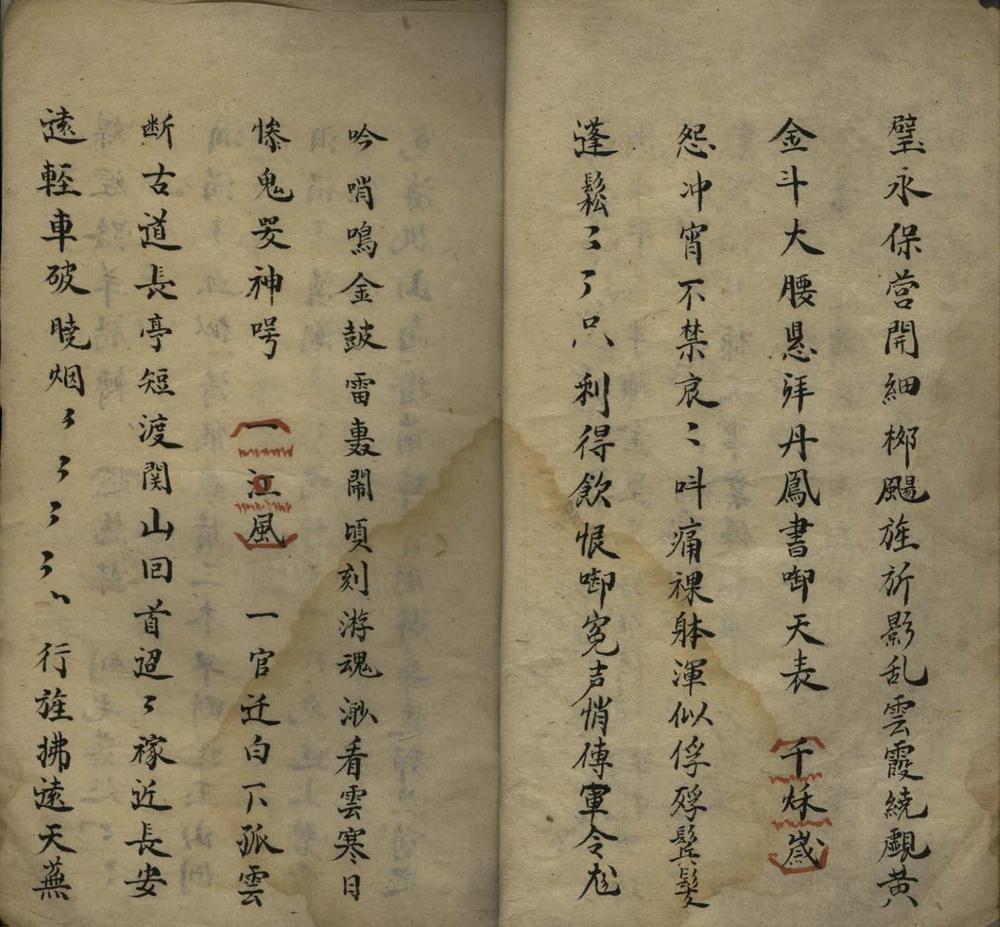 璧永保营開細栁颺旌旂影乱雲霞繞覷黄
金斗大腰悬拜丹鳳書啣天表 千秌歳
怨冲宵不禁哀〻呌痛裸躰渾似俘殍鬓髮
蓬鬆〻〻只利得飲恨啣寃声悄傳軍令尨
吟哨鳴金鼓雷轟鬧頃刻游魂渺看雲寒日
惨鬼哭神号 一江風 一官迁白下孤雲
断古道長亭短渡関山回首迢〻稼近長安
遠輕車破曉烟〻〻〻〻〻行旌拂遠天蕪